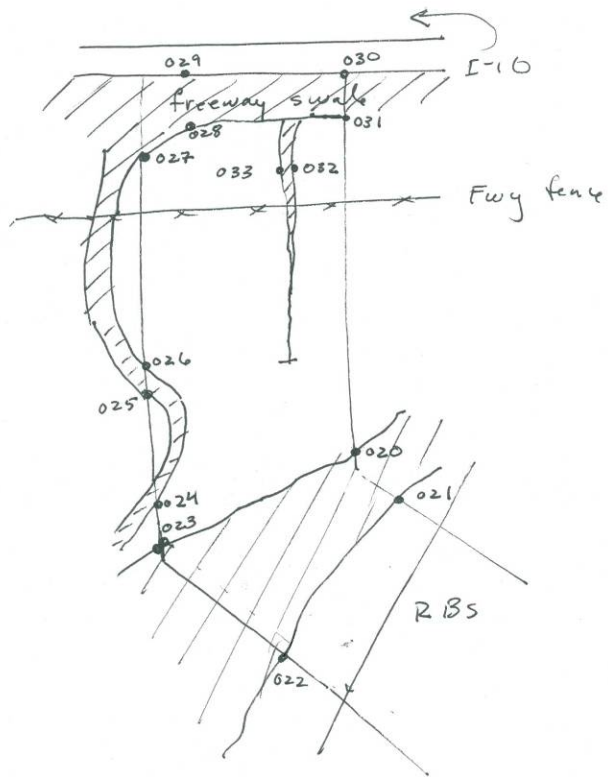 029
030
I-10
freeway swale
028
031
027
033
032
Fwy fence
026
025
020
024
021
023
RBS
022